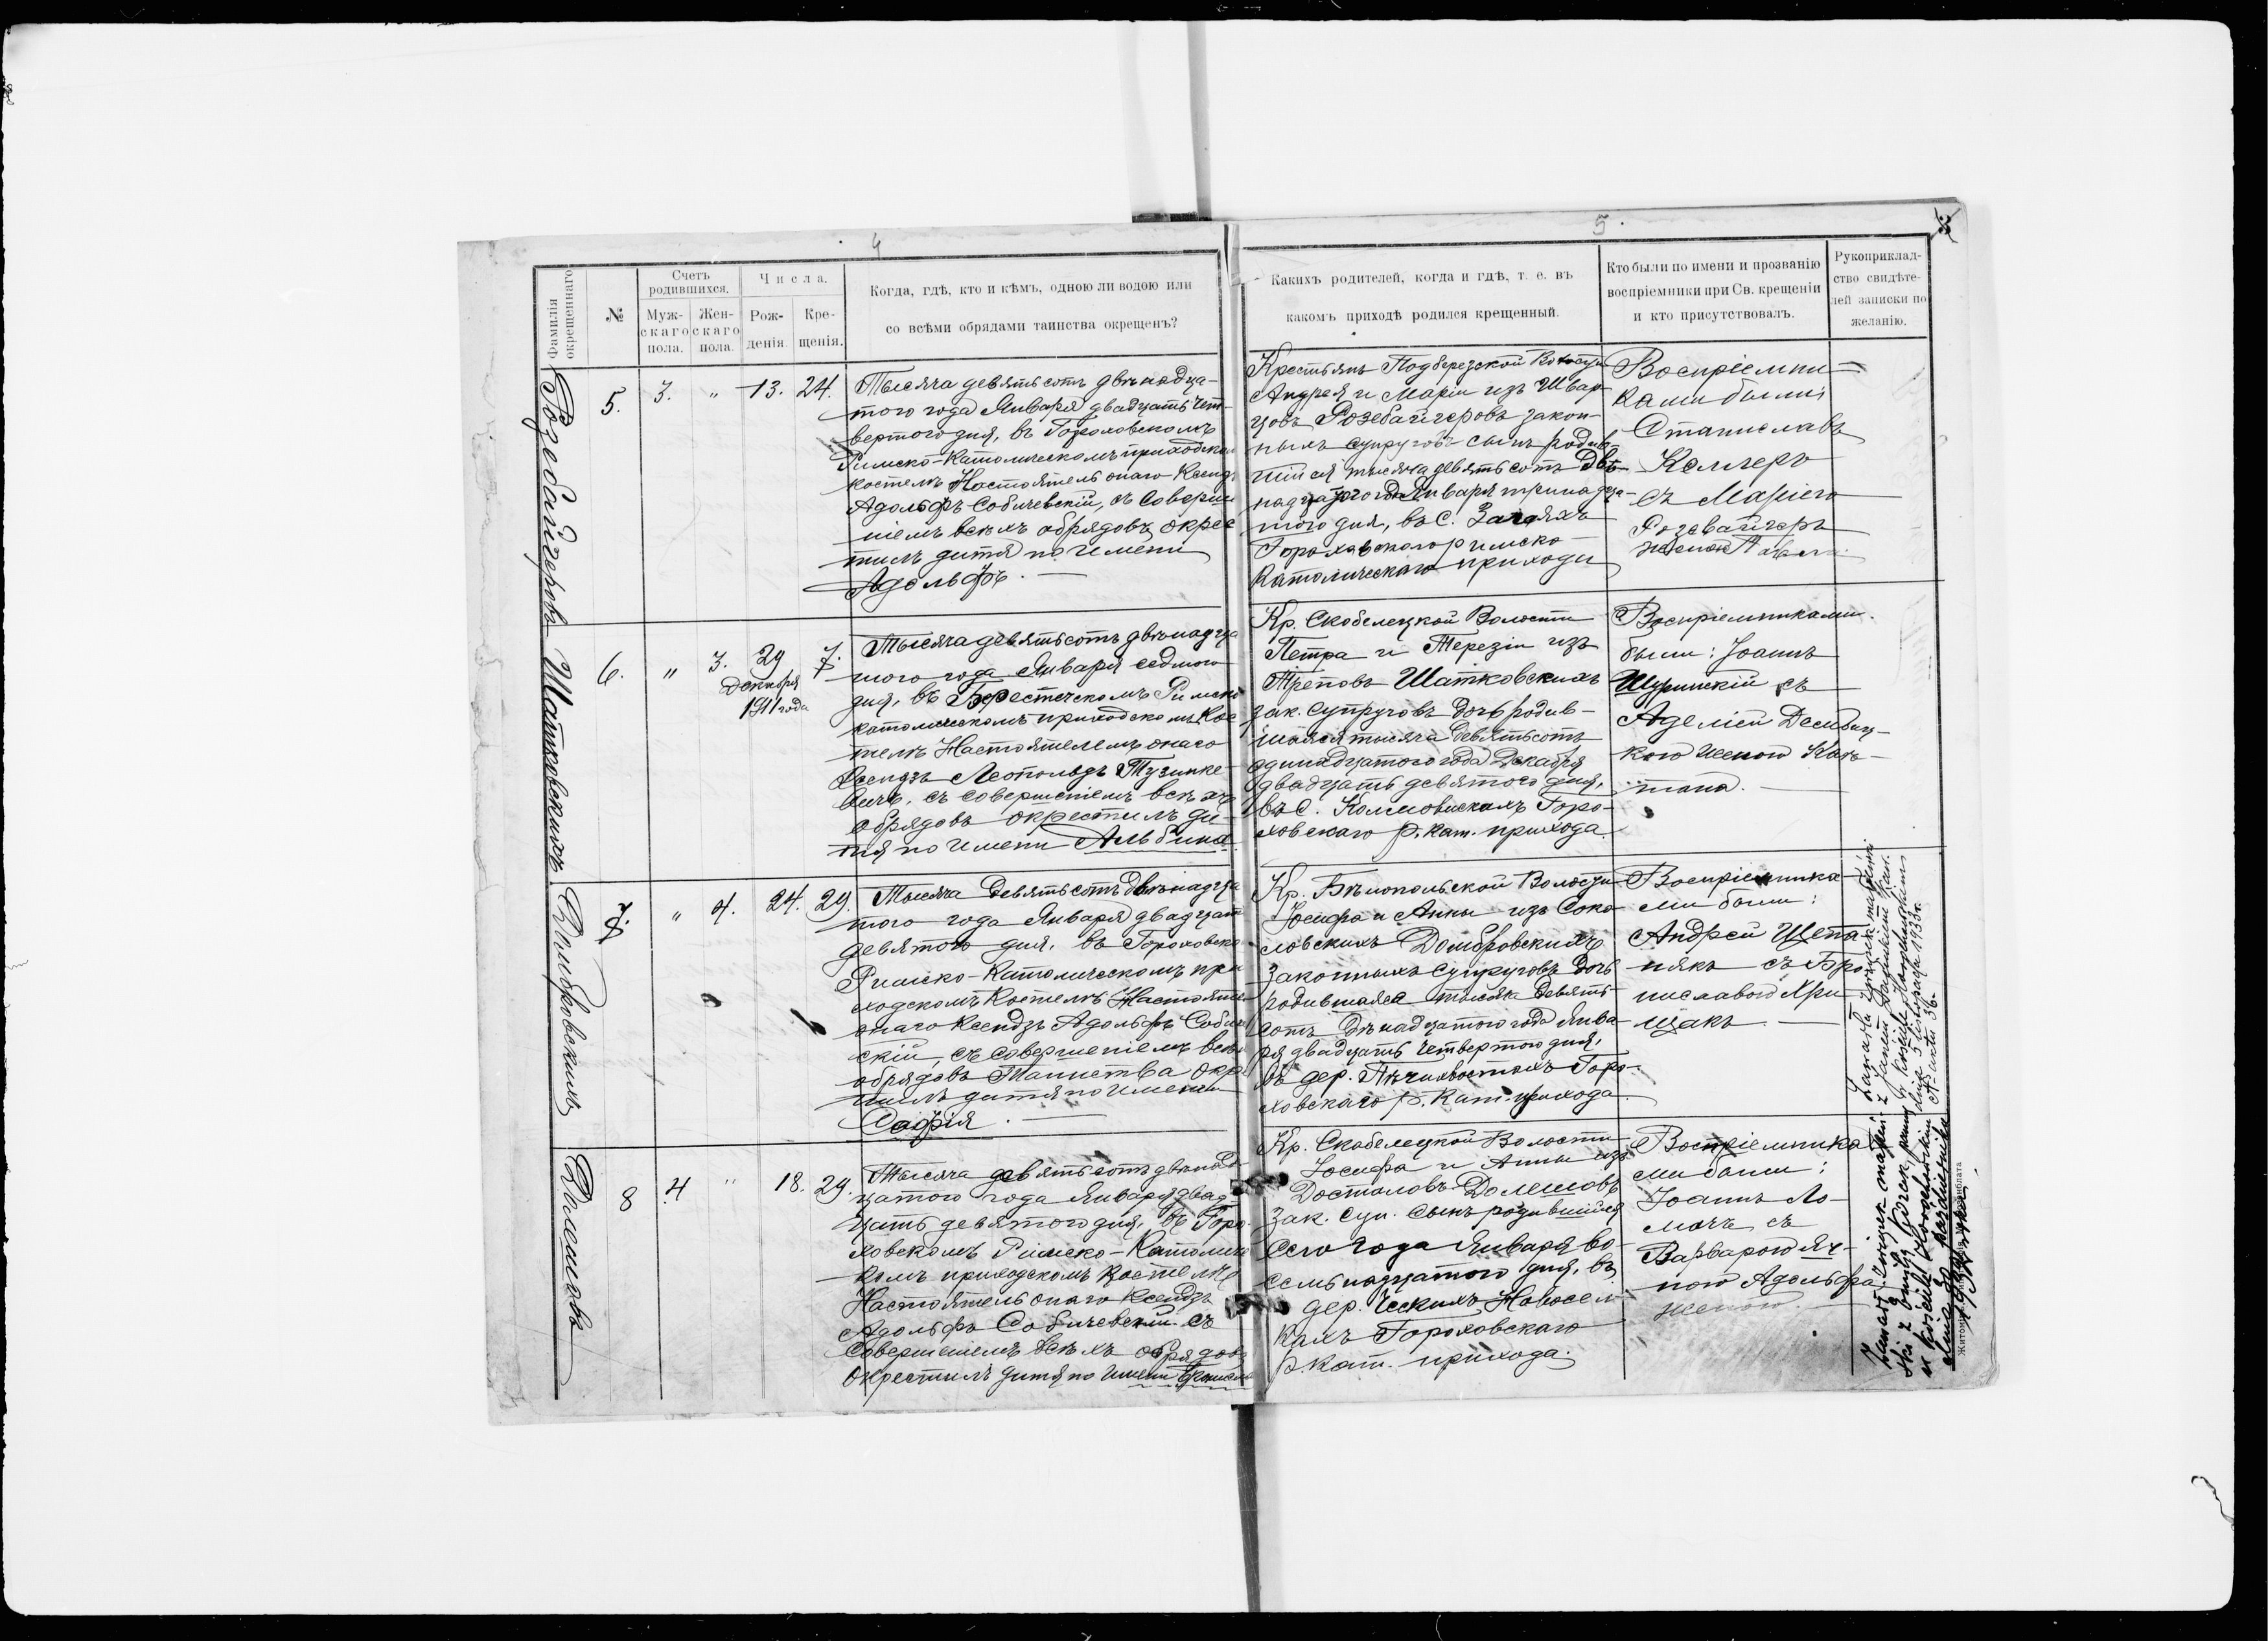 4
5.
Фамилія окрещеннаго
№
Счетъ родившихся.
Мужскаго пола.
Женскаго пола.
Числа.
Рожденія.
Крещенія.
Когда, гдѣ, кто и кѣмъ, одною ли водою или
со всѣми обрядами таинства окрещенъ?
Какихъ родителей, когда и гдѣ, т. е. въ
какомъ приходѣ родился крещенный.
Кто были по имени и прозванію
воспріемники при Св. крещеніи
и кто присутствовалъ.
Рукоприклад-
ство свидѣте-
лей записки по
желанію.
Розебайгеровъ
5. 3. " 13. 24.
Тысяча девятьсотъ двѣнадца-
того года Января двадцать чет-
вертого дня, въ Гороховскомъ
Римско-Католическомъ приходском
костелѣ Настоятель онаго Ксендз
Адольфъ Собичевскій, съ соверше
ніемъ всѣхъ обрядовъ окрес
тилъ дитя по имени
Адольфъ. —
Крестьянъ Подберезской Волости
Андрея и Маріи изъ Швар-
цовъ Розебайгеровъ закон-
ныхъ супруговъ сынъ родив-
шійся тысяча девятьсотъ двѣ-
надцатого года Января тринадца-
того дня, въ с.
Гороховскаго римско-
католическаго прихода
Воспріемни-
ками были:
Станиславъ
Келлеръ
съ Маріею
Розевайгеръ
женою
Шатковскихъ
6. " 3. 29 7.
Декабря
1911 года
Тысяча девятьсотъ двѣнадца
того года Января седмого
дня, въ Берестечскомъ Римско
католическомъ приходскомъ Кос
телѣ Настоятелемъ онаго
Ксендзъ Леопольдъ
съ совершеніемъ всѣхъ
обрядовъ окрестилъ ди-
тя по имени Альбина
Кр. Скобелецкой Волости
Петра и Терезіи изъ
Треповъ Шатковскихъ
зак. супруговъ дочь родив-
шаяся тысяча девятьсотъ
одинадцатого года Декабря
двадцать девятого дня,
въ с. Горо-
ховскаго р. кат. прихода.
Воспріемниками
были: Іоаннъ
съ
Аделіей
кою женою Капи-
тана. —
Домбровскихъ
7. " 4. 24. 29.
Тысяча девятьсотъ двѣнадца
того года Января двадцат
девятого дня, въ Гороховско
Римско-Католическомъ при
ходскомъ Костелѣ Настоятел
онаго Ксендзъ Адольфъ Собич
скій, съ совершеніемъ всѣ
обрядовъ Таинства окре
тилъ дитя по имени
Софія. —
Кр. Бѣлопольской Волости
Іосифа и Анны изъ Соко-
ловскихъ Домбровскихъ
законныхъ супруговъ дочь
родившаяся тысяча девять-
сотъ двѣнадцатого года Янва-
ря двадцать четвертого дня,
въ дер. Пѣчихвостахъ Горо-
ховскаго р. кат. прихода.
Воспріемника-
ми были:
Андрей Щепа-
някъ съ Бро-
ниславою Хри-
щакъ. —
Долешовъ
8 4 " 18. 29.
Тысяча девятьсотъ двѣнад
цатого года Января двад-
цать девятого дня, въ Горо-
ховскомъ Римско-Католичес
комъ приходскомъ костелѣ
Настоятель онаго Ксендзъ
Адольфъ Собичевскій съ
совершеніемъ всѣхъ обрядовъ
окрестилъ дитя по имени
Кр. Скобелецкой Волости
Іосифа и Анны изъ
Досталовъ Долешовъ
Зак. суп. сынъ родившійся
сего года Января во-
семьнадцатого дня, въ
дер. Ческихъ Новосел-
кахъ Гороховскаго
р. кат. прихода.
Воспріемника-
ми были:
Іоаннъ Ло-
мачъ съ
Варварою Яч-
ною Адольфа
женою. —